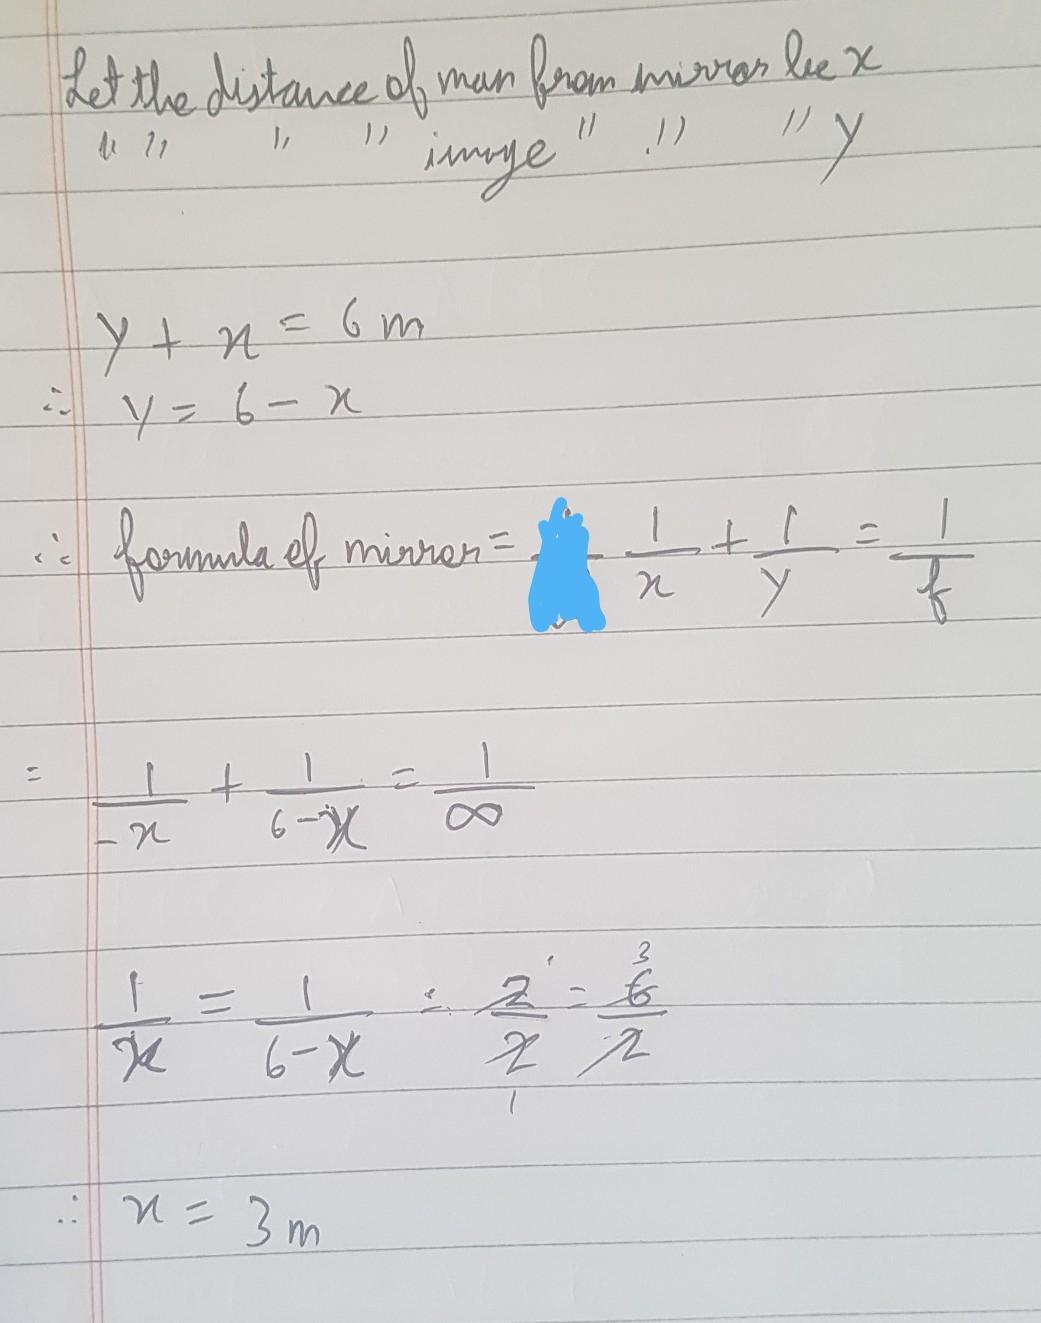 Let the distance of man from mirror be x
" " " " image " " " y
y + x = 6 m
∴ y = 6 - x
∴ formula of mirror = 1/x + 1/y = 1/f
= 1/-x + 1/6-x = 1/∞
1/x = 1/6-x = 2/2 = 6/2 1 3 1
∴ x = 3 m